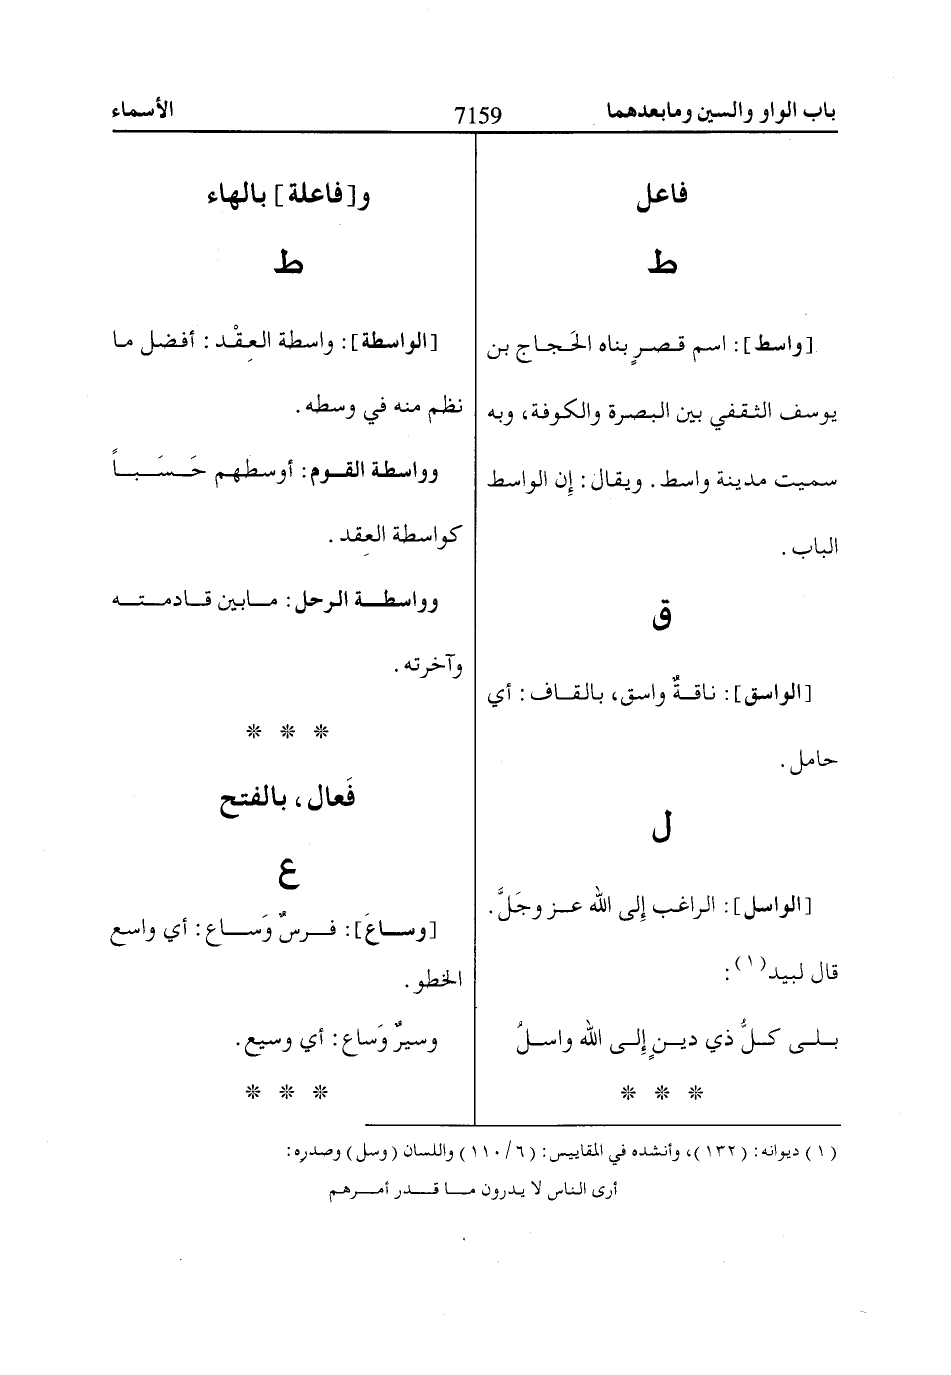 باب الواو والسين ومابعدهما 7159 الأسماء
فاعل
ط
[واسط]: اسم قصرٍ بناه الحَجاج بن
يوسف الثقفي بين البصرة والكوفة، وبه
سميت مدينة واسط. ويقال: إن الواسط
الباب.
ق
[الواسق]: ناقةٌ واسق، بالقاف: أي
حامل.
ل
[الواسل]: الراغب إلى الله عز وجَلَّ.
قال لبيد(١):
بلى كلُّ ذي دينٍ إلى الله واسلُ
* * *
و[فاعلة] بالهاء
ط
[الواسطة]: واسطة العِقْد: أفضل ما
نظم منه في وسطه.
وواسطة القوم: أوسطهم حَسَباً
كواسطة العِقد.
وواسطة الرحل: مابين قادمته
وآخرته.
* * *
فَعال، بالفتح
ع
[وساعَ]: فرسٌ وَساع: أي واسع
الخطو.
وسيرٌ وَساع: أي وسيع.
* * *
(١) ديوانه: (١٣٢)، وأنشده في المقاييس: (٦/ ١١٠) واللسان (وسل) وصدره:
أرى الناس لا يدرون ما قدر أمرهم